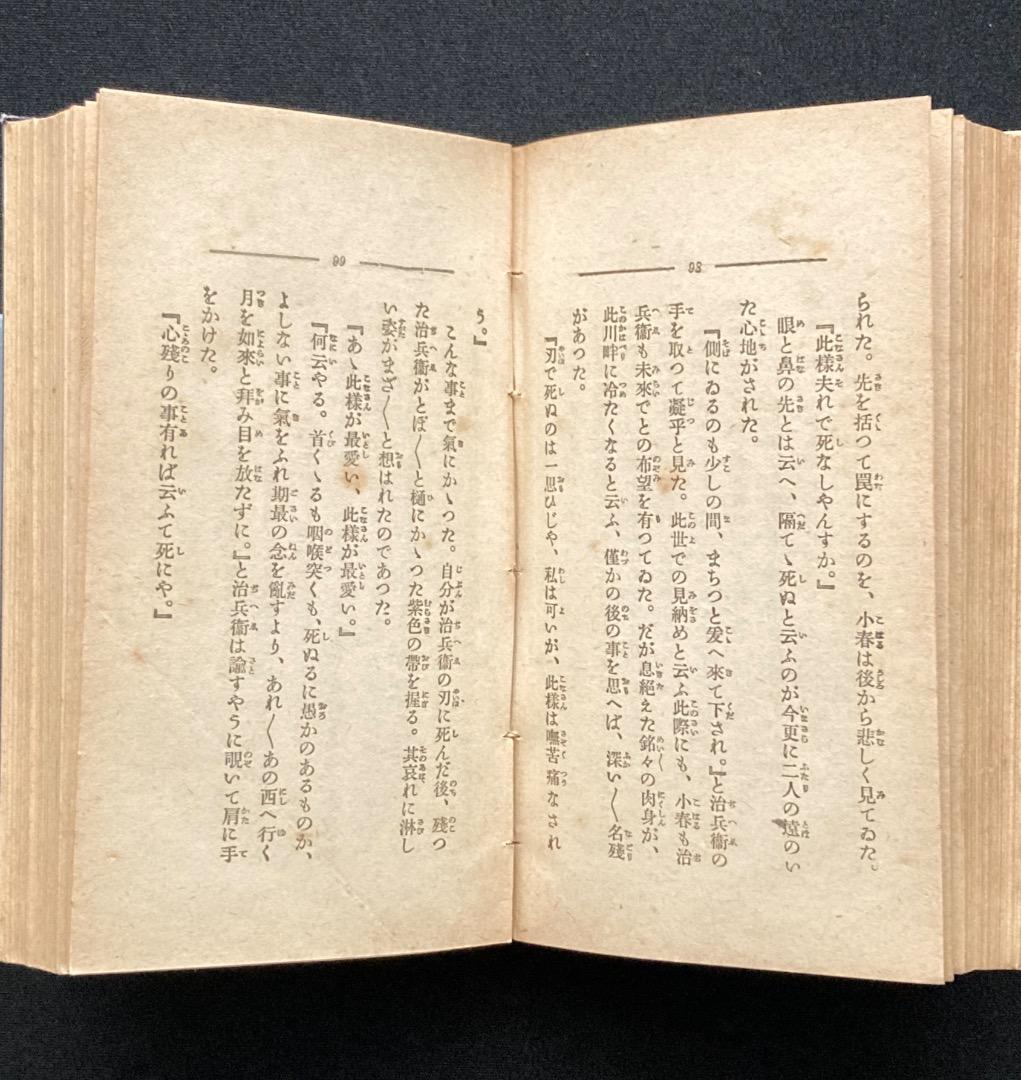 98
られた。先を括つて罠にするのを、小春は後から悲しく見てゐた。
『此様夫れで死なしやんすか。』
眼と鼻の先とは云へ、隔てゝ死ぬと云ふのが今更に二人の遠のい
た心地がされた。
『側にゐるのも少しの間、まちつと爰へ來て下され。』と治兵衞の
手を取つて凝乎と見た。此世での見納めと云ふ此際にも、小春も治
兵衞も未來でとの布望を有つてゐた。だが息絶えた銘々の肉身が、
此川畔に冷たくなると云ふ、僅かの後の事を思へば、深い〳〵名殘
があつた。
『刃で死ぬのは一思ひじや、私は可いが、此樣は嘸苦痛なされ
99
う。』
こんな事まで氣にかゝつた。自分が治兵衞の刃に死んだ後、殘つ
た治兵衞がとぼ〳〵と樋にかゝつた紫色の帶を握る。其哀れに淋し
い姿がまざ〳〵と想はれたのであつた。
『あゝ此樣が最愛い、此樣が最愛い。』
『何云やる。首くゝるも咽喉突くも、死ぬるに愚かのあるものか、
よしない事に氣をふれ期最の念を亂すより、あれ〳〵あの西へ行く
月を如來と拜み目を放たずに。』と治兵衞は諭すやうに覗いて肩に手
をかけた。
『心殘りの事有れば云ふて死にや。』